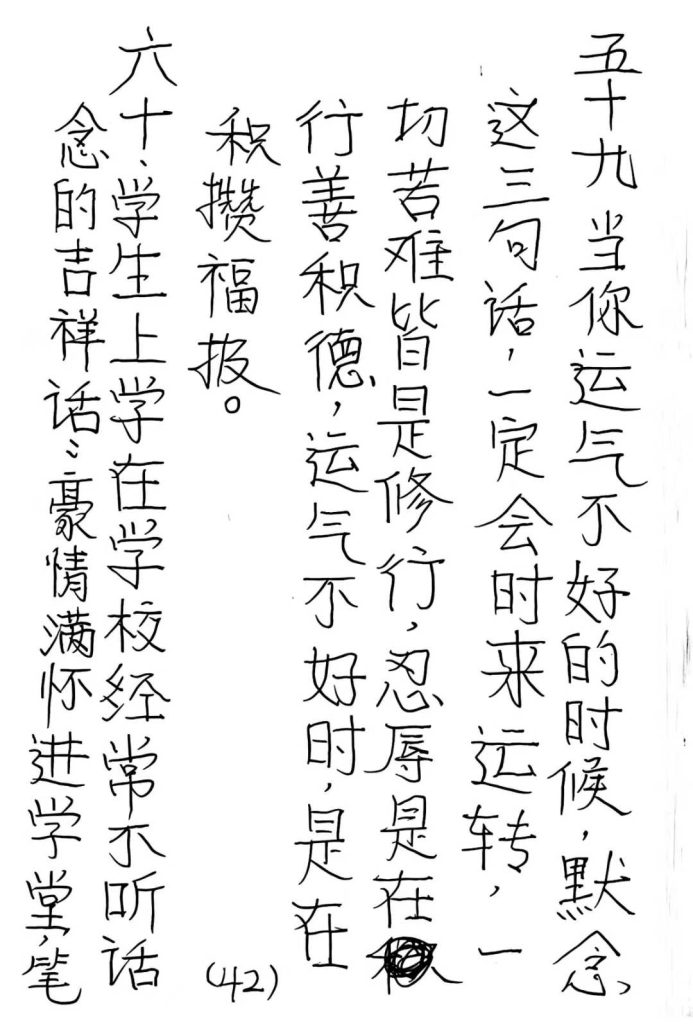 五十九当你运气不好的时候，默念、
这三句话，一定会时来运转，一
切苦难皆是修行，忍辱是在
行善积德，运气不好时，是在
积攒福报。
(42)
六十、学生上学在学校经常不听话
念的吉祥话：豪情满怀进学堂，笔